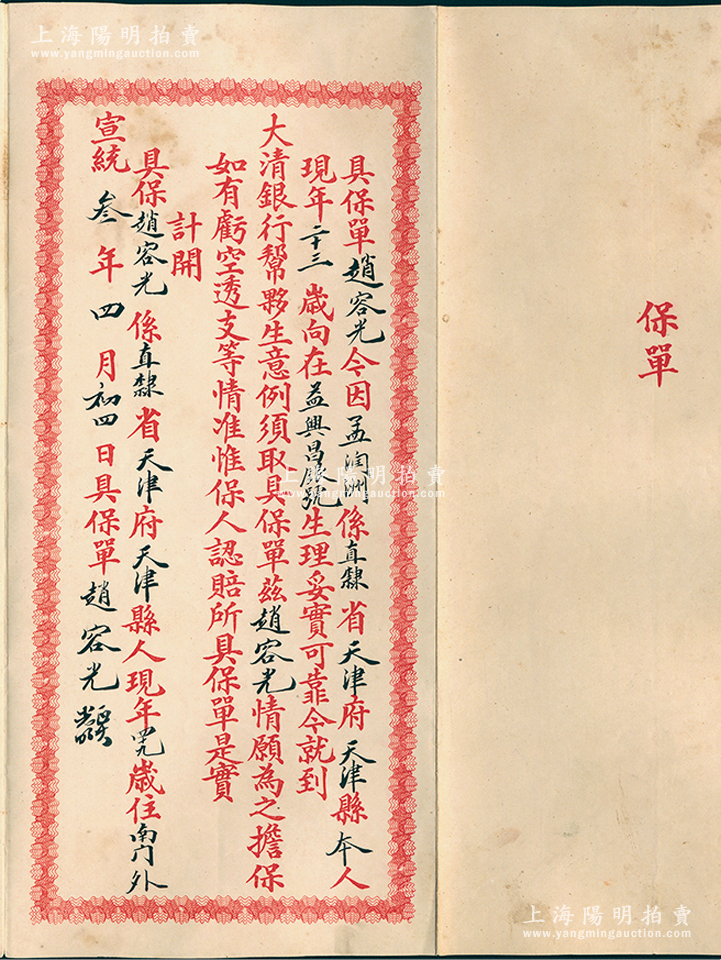 上海陽明拍賣
www.yangmingauction.com
上海陽明拍賣
www.yangmingauction.com
保單
具保單趙容光今因孟潤洲係直隸省天津府天津縣本人
現年二十三歲向在益興昌銀號生理妥實可靠今就到
大清銀行幫夥生意例須取具保單茲趙容光情願為之擔保
如有虧空透支等情准惟保人認賠所具保單是實
計開
具保趙容光係直隸省天津府天津縣人現年四九歲住南門外
宣統叁年四月初四日具保單趙容光
上海陽明拍賣
www.yangmingauction.com
上海陽明拍賣
www.yangmingauction.com